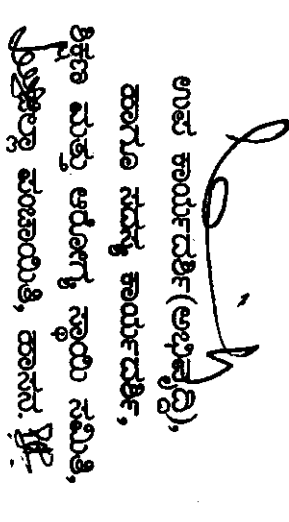 ಉಪ ಕಾರ್ಯದರ್ಶಿ(ಅಭಿವೃದ್ಧಿ),
ಹಾಗೂ ಸದಸ್ಯ ಕಾರ್ಯದರ್ಶಿ,
ಶಿಕ್ಷಣ ಮತ್ತು ಆರೋಗ್ಯ ಸ್ಥಾಯಿ ಸಮಿತಿ,
ಜಿಲ್ಲಾ ಪಂಚಾಯಿತಿ, ಹಾಸನ.